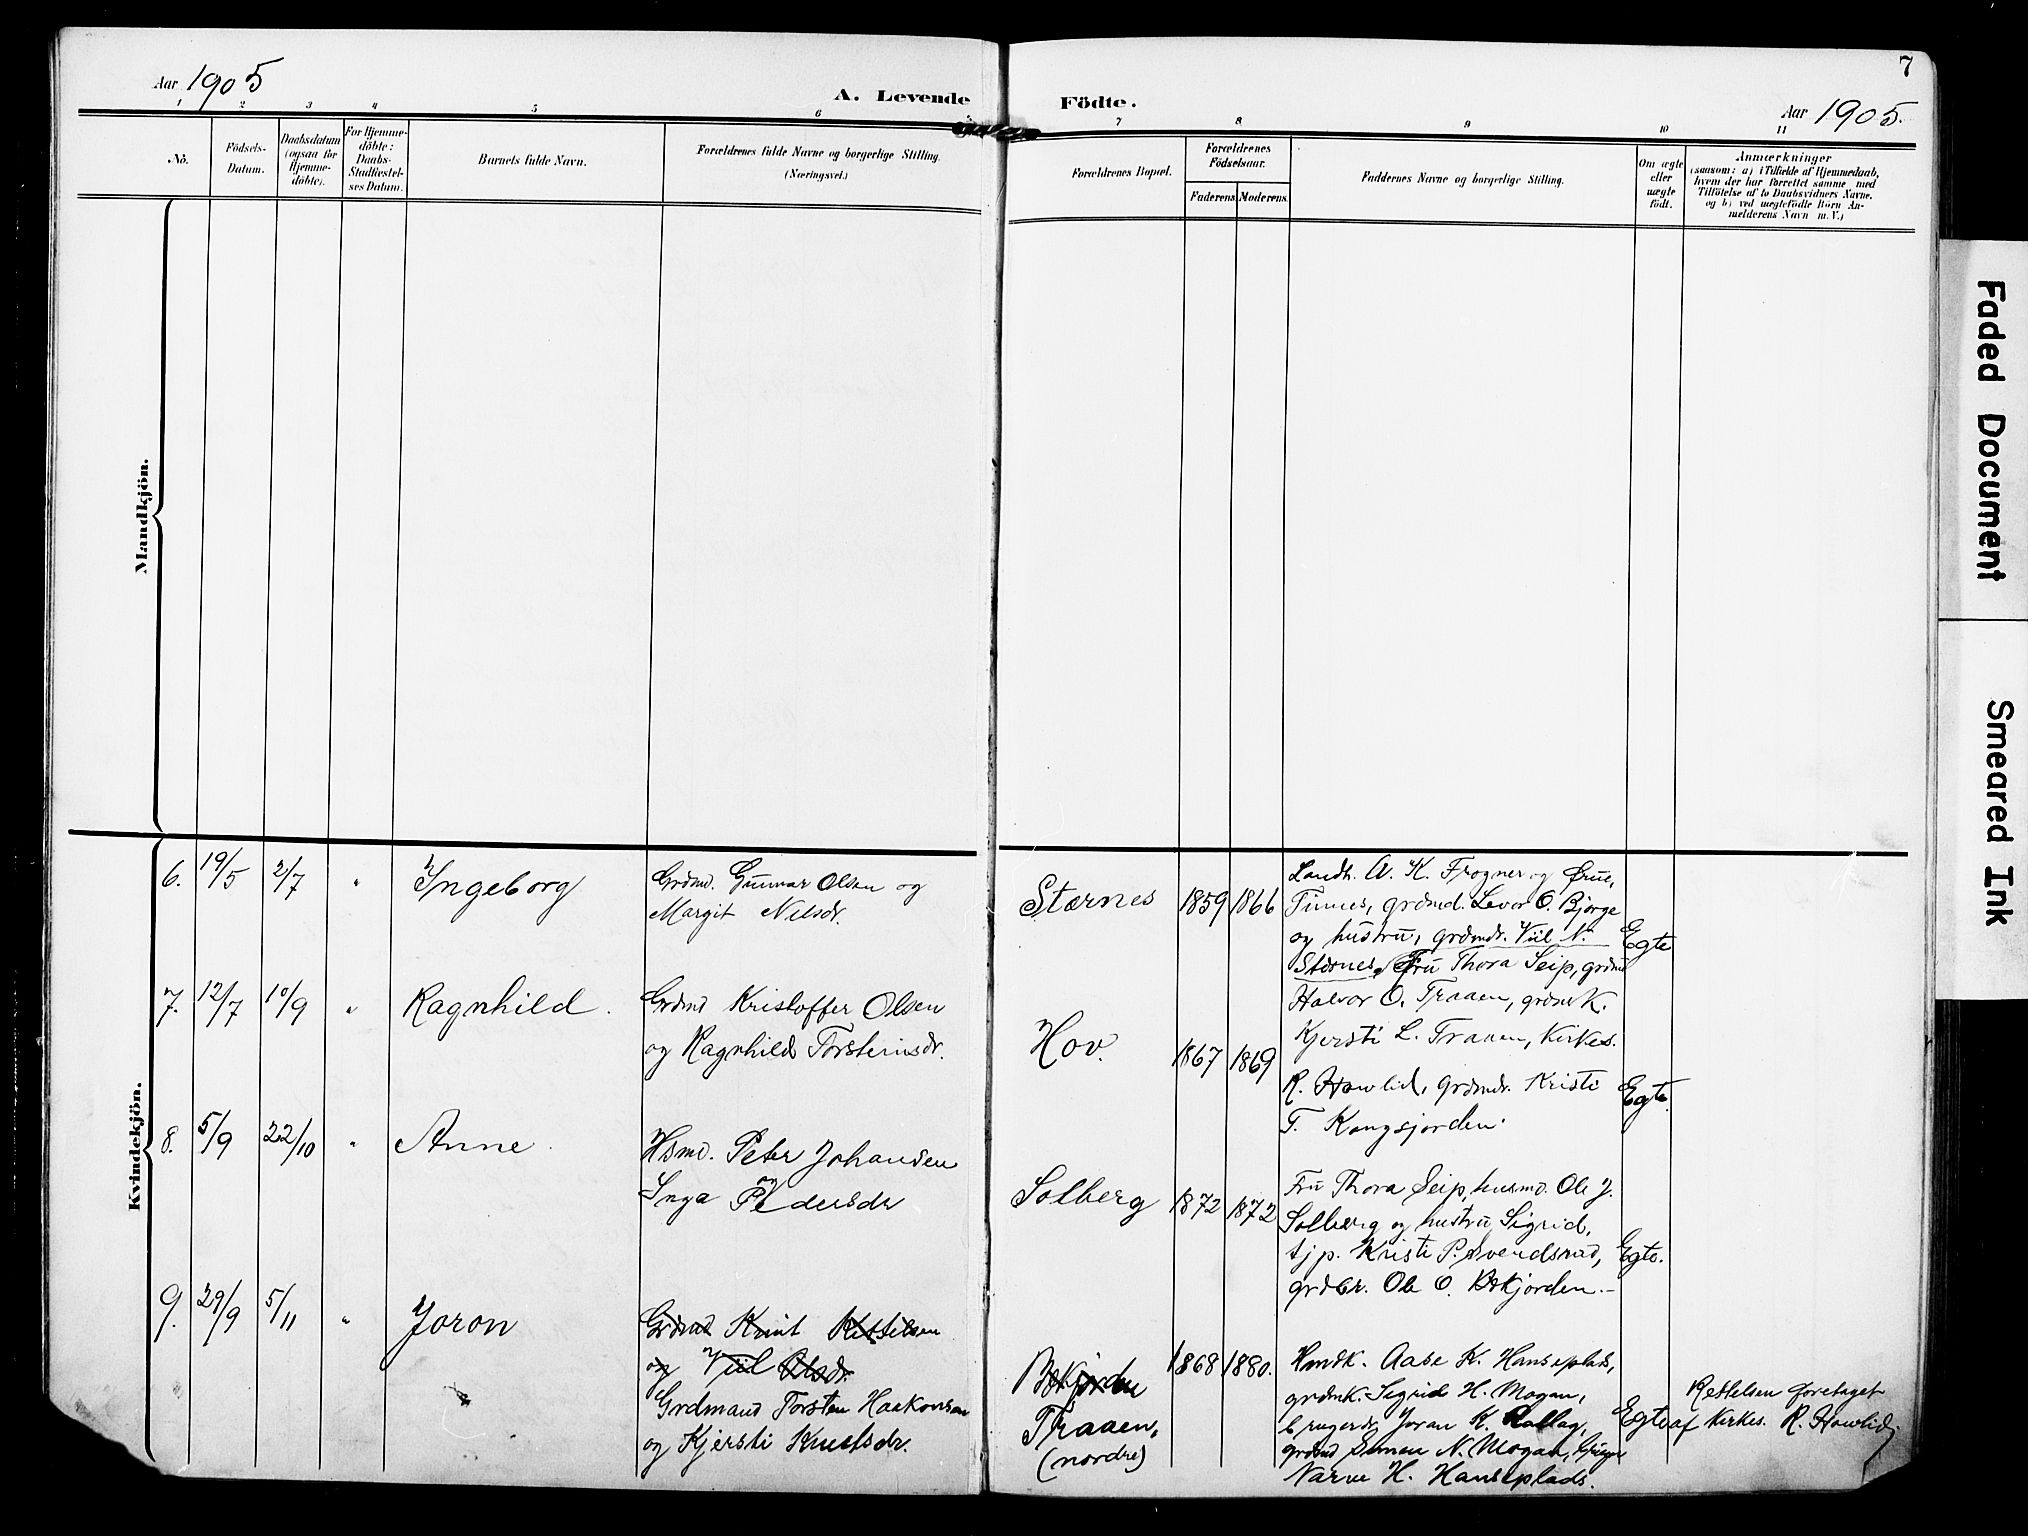 7
Aar 1905
A. Levende Födte.
Aar 1905.
1 2 3 4 5 6 7 8 9 10 11
No.
Födsels-
Datum.
Daabsdatum
(ogsaa for
Hjemme-
döbte).
For Hjemme-
döbte:
Daabs-
Stadfæstel-
ses Datum.
Barnets fulde Navn.
Forældrenes fulde Navne og borgerlige Stilling.
(Næringsvei.)
Forældrenes Bopæl.
Forældrenes
Födselsaar.
Faderens Moderens
Faddernes Navne og borgerlige Stilling.
Om ægte
eller
uægte
födt.
Anmærkninger
(saasom: a) i Tilfælde af Hjemmedaab,
hvem der har forrettet samme med
Tilföielse af to Daabsvidners Navne,
og b) ved uægtefödte Börn An-
melderens Navn m. V.)
Mandkjön.
Kvindekjön.
6. 19/5 2/7 " Ingeborg
Grdmd. Gunnar Olsen og
Margit Nilsdr.
Stærnes 1859 1866
Landh. A. K. Frogner og Frue,
Tunes, grdmd. Levor O. Bjørge
og hustru, grdmdr. Viil N.
Stærnes, Fru Thora Seip, grdmd
Egte
7. 12/7 10/9 " Ragnhild.
Grdmd Kristoffer Olsen
og Ragnhild Torsteinsdr.
Hov. 1867 1869
Halvor O. Traaen, grdmk.
Kjersti L. Traaen, Kirkes.
R. Howlid, grdmdr. Kristi
T. Kongsjorden.
Egte.
8. 5/9 22/10 " Anne.
Hsmd. Peter Johansen
og
Inga Pedersdr
Solberg 1872 1872
Fru Thora Seip, husmd. Ole J.
Solberg og hustru Sigrid,
tjp. Kristi P. Svendsrud,
grdbr. Ole O. Bækjorden.-
Egte.
9. 29/9 5/11 " Joron
Grdmd Knut Kittilsen
og Viil Olsdr.
Grdmand Torsten Haakonson
og Kjersti Knutsdr.
Bækjorden
Traaen,
(nordre)
1868 1880.
Hmdk. Aase K. Hanseplads,
grdmk. Sigrid H. Mogan,
brugerdr. Joran K. Rollag,
grdmd Simen N. Mogan,
Narve H. Hanseplads.
Egte
Rettelsen foretaget
af Kirkes. R. Howlid
Faded Document
Smeared Ink